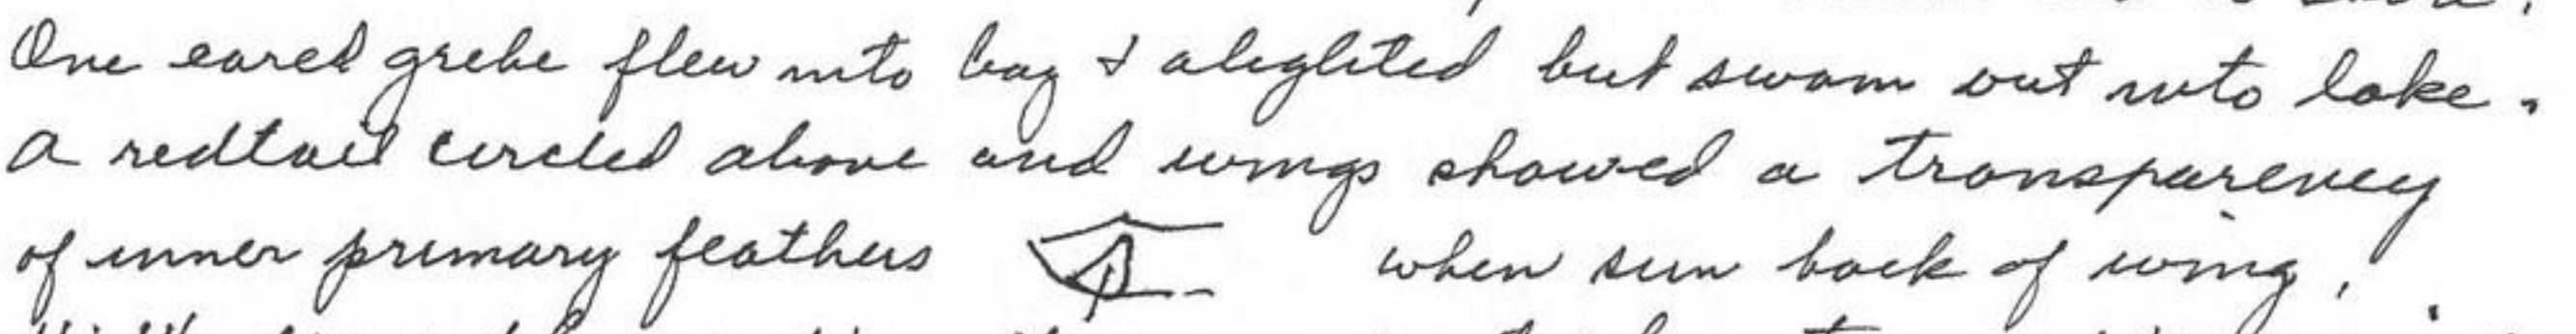 One eared grebe flew into bay & alighted but swam out into lake.
A redtail circled above and wings showed a transparency
of inner primary feathers when sun back of wing.